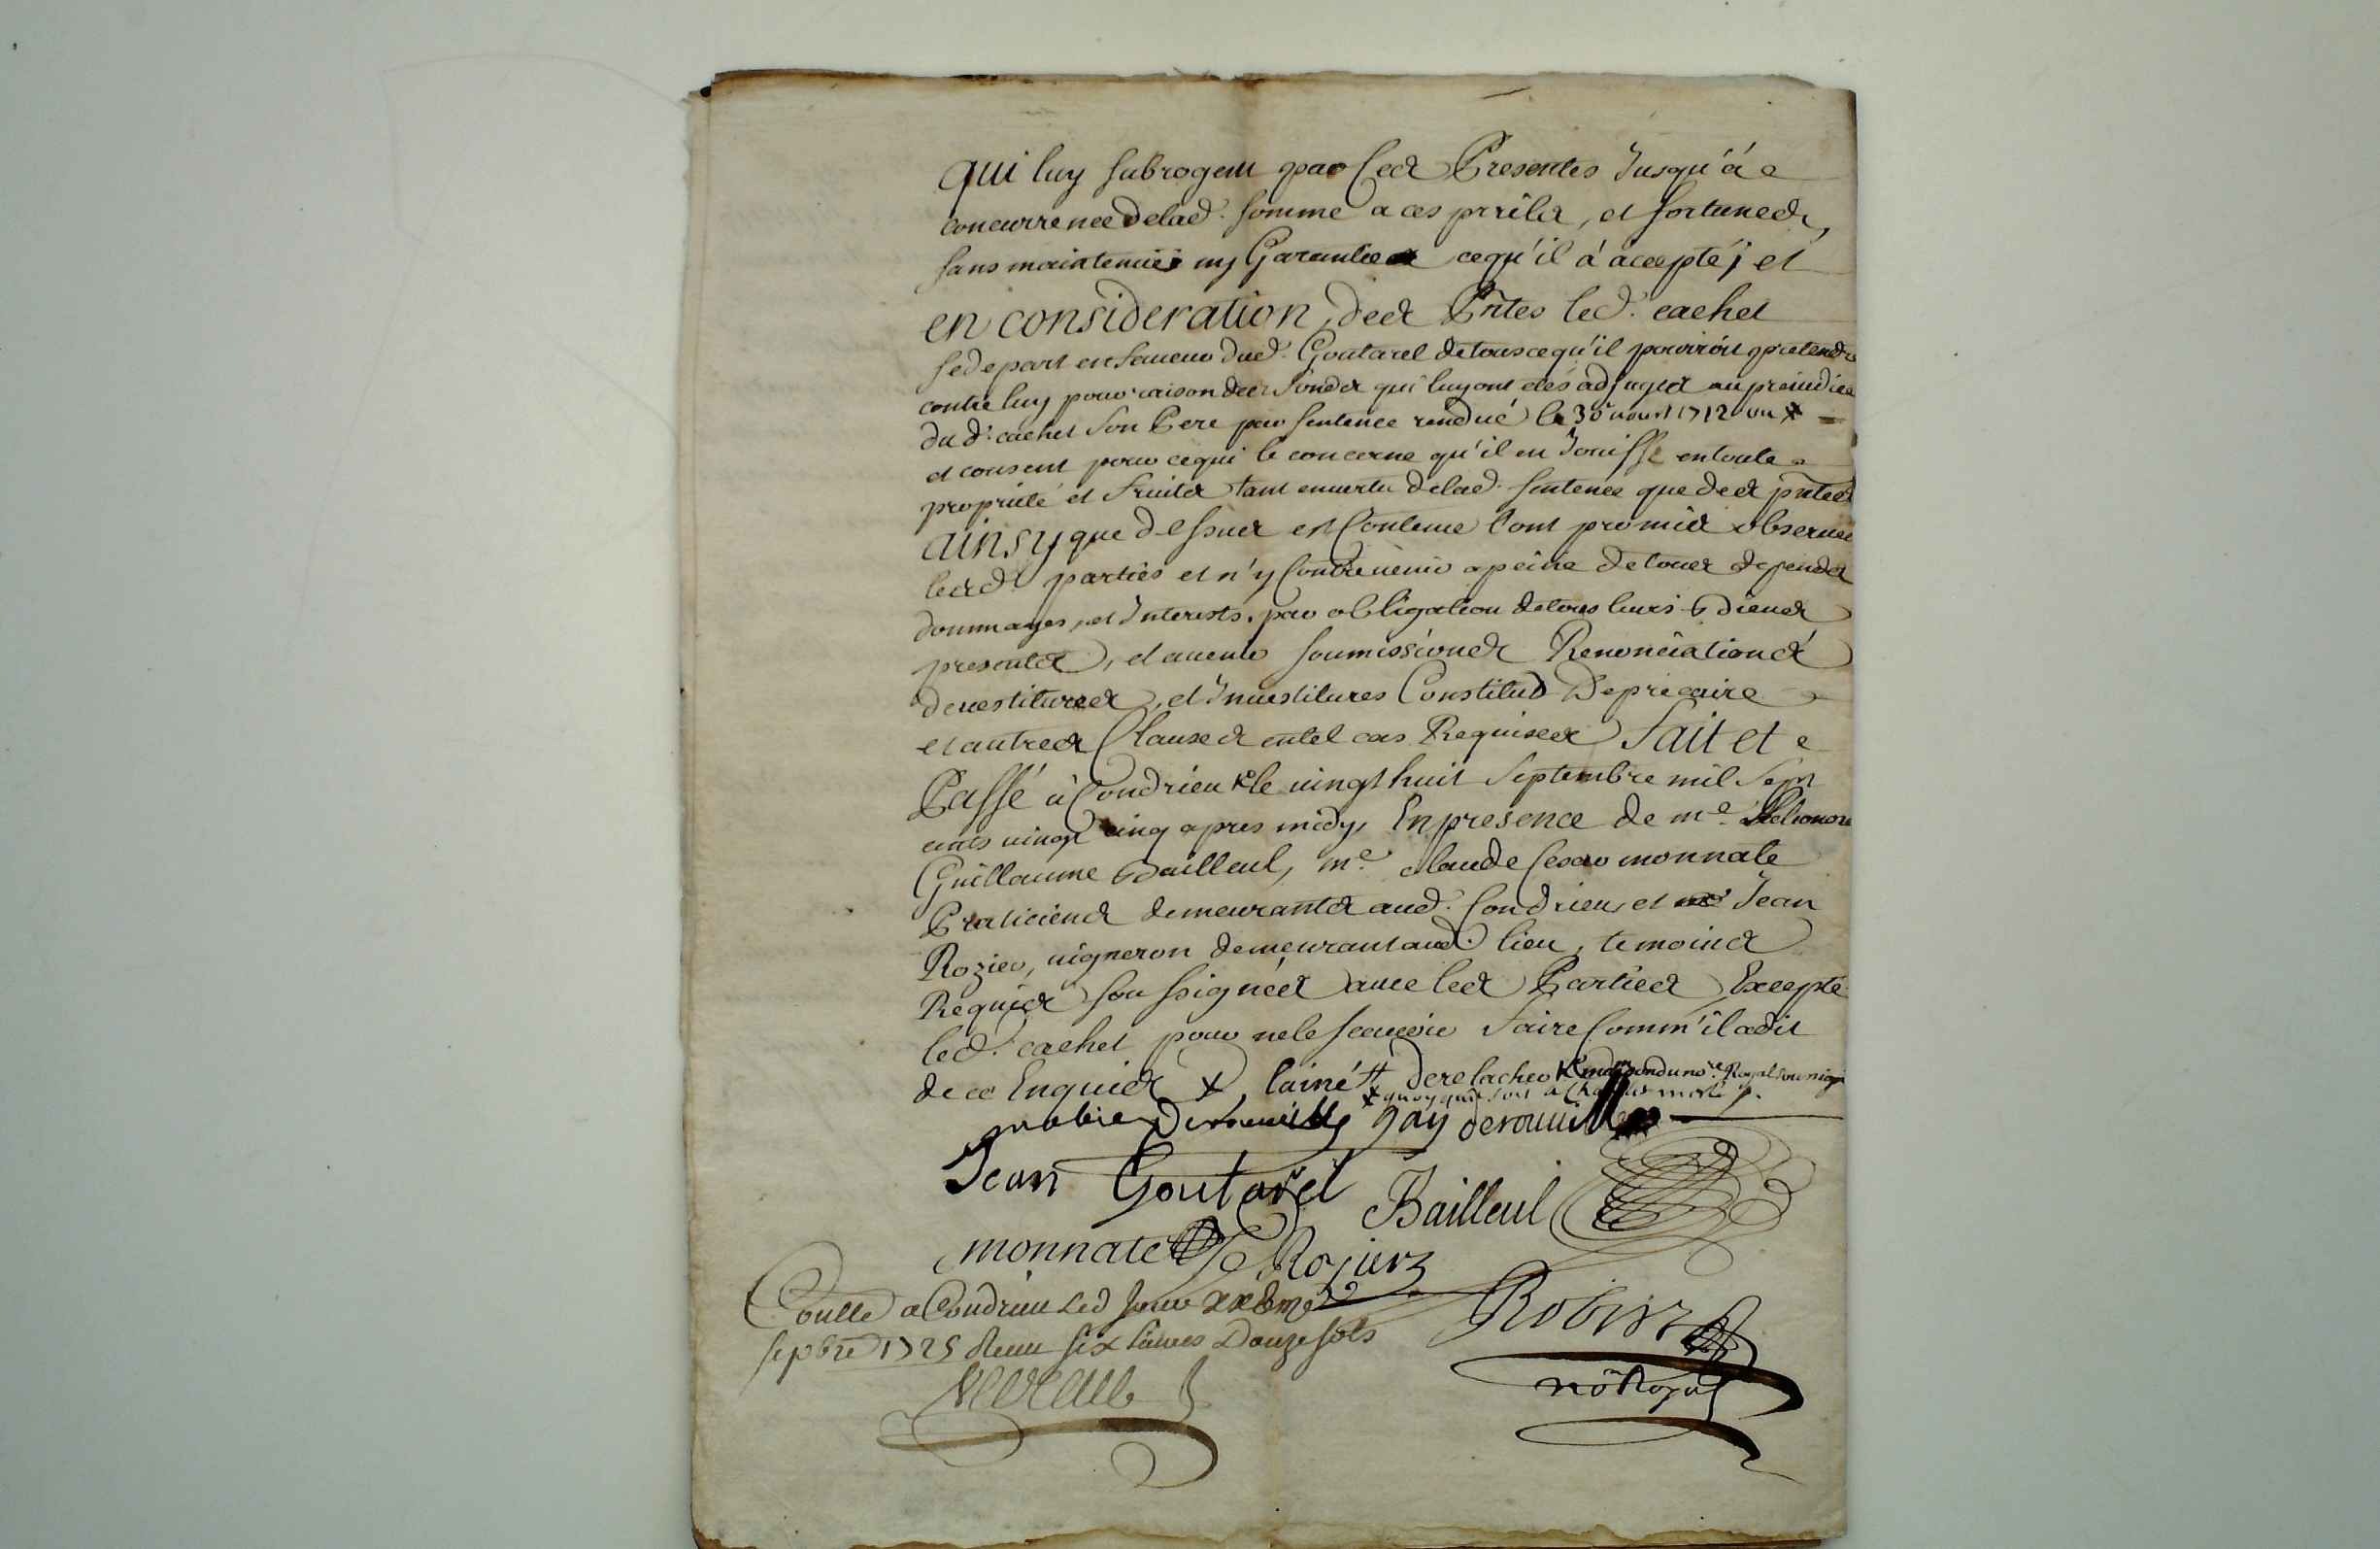 qui luy subrogent par ces Presentes Jusqu'à
concurrence delad. somme a ces perils, et fortunes,
sans maintenüe ny Garantie ce qu'il à accepté, et
en consideration, des Pntes led. cachet
se depart en faueur dud. Goutarel de tous ce qu'il pouroit pretendre
contre luy pour raison des fonds qui luy ont etés adjugés au prejudice
du d. cachet son Pere par sentence rendüe le 30 aoust 1712
et consent pour ce qui le concerne qu'il en Jouisse en toute
proprieté et fruits tant en uertu delad. sentence que des pntes
ainsy que dessus est Contenu l'ont promis obseruer
lesd. parties et n'y Contreuenir a peine de tous depends
dommages, et Interests, par obligation de tous leurs Biens
presents, et auenir soumissions Renonciations
deuestitures, et Inuestitures Constitut De precaire
et autres Clauses en tel cas Requises fait et
Passé à Condrieu le uingt huit Septembre mil sept
cents uingt cinq apres midy, En presence de me.
Guillaume Bailleul, me. Claude Cesar monnate
Praticiens demeurants aud. Condrieu, et Jean
Rozier, uigneron demeurant aud. lieu, temoins
Requis soussignées auec les Parties, Excepté
led. cachet pour ne le scauoir faire Comm'il a dit
de ce Enquis x lainé # de relacher maison du no.re Royal soussigné
x quoyqu'il soit
derouuille gay derouuille
Jean Goutarel
Bailleul
monnate Je Rozier
Conlle a Condrieu Led Jour
sepbre 1725 Receu six liures Douze sols
Robin
no Royal